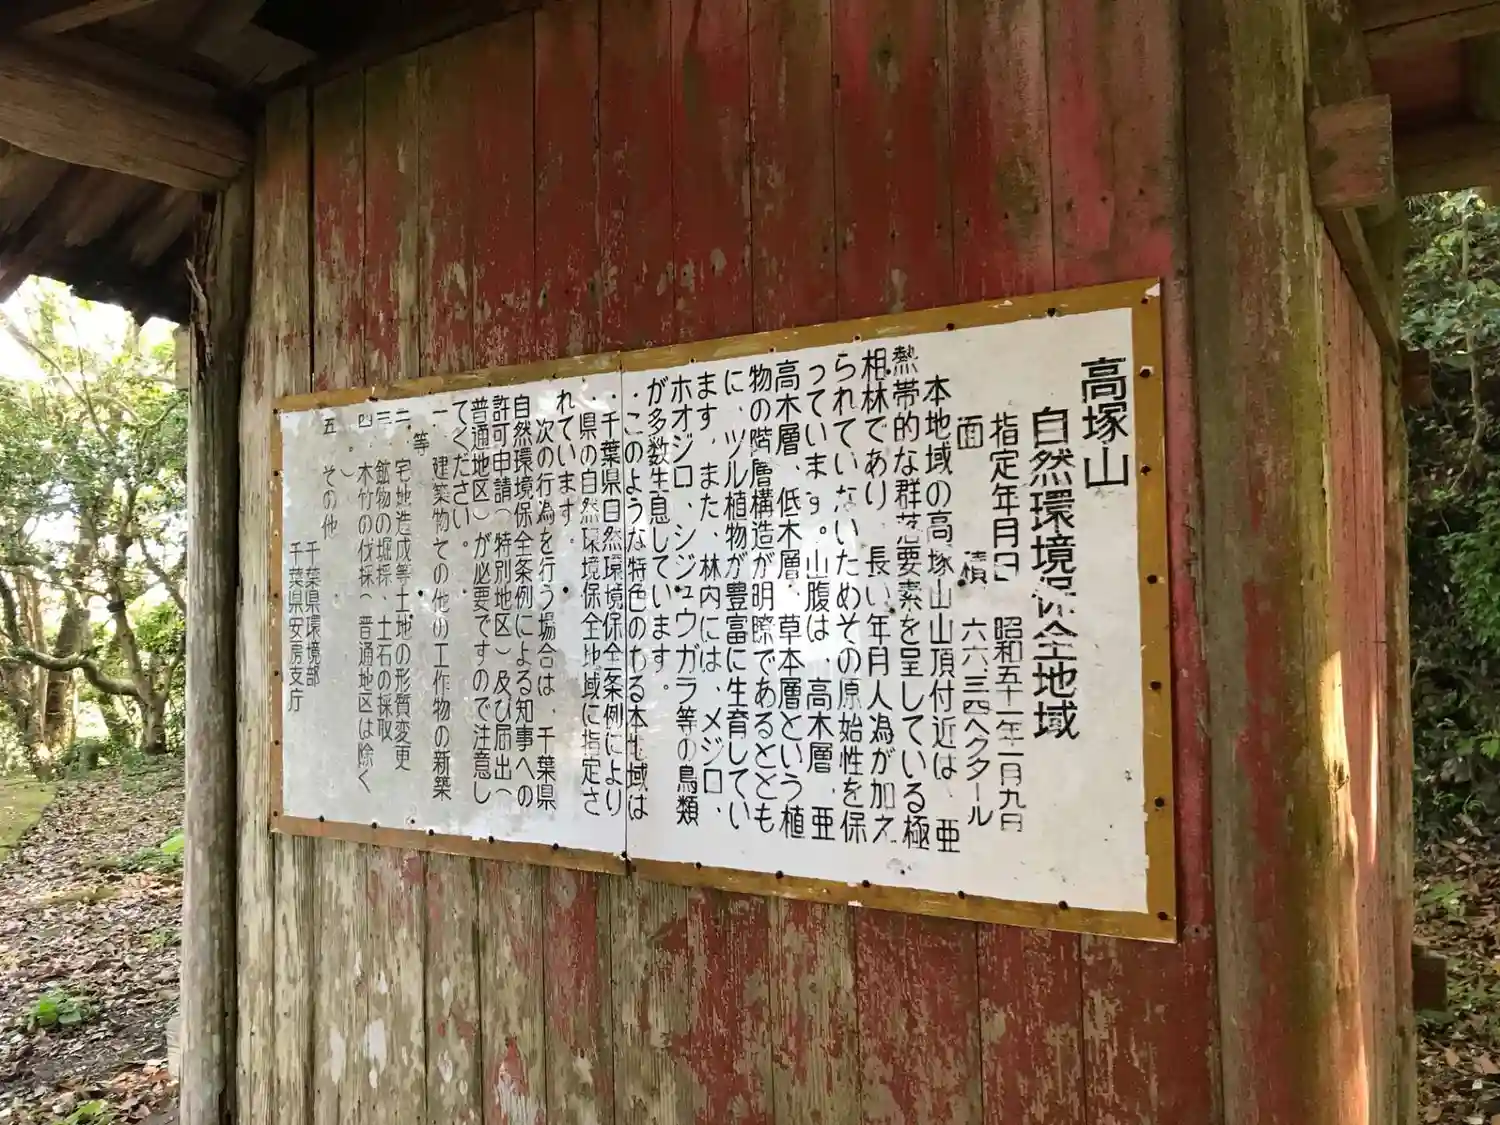 高塚山
自然環境保全地域
指定年月日 昭和五十一年二月九日
面 積 六六.三四ヘクタール
本地域の高塚山山頂付近は、亜
熱帯的な群落要素を呈している極
相林であり、長い年月人為が加え
られていないためその原始性を保
っています。山腹は、高木層、亜
高木層、低木層、草本層という植
物の階層構造が明瞭であるととも
に、ツル植物が豊富に生育してい
ます。また、林内には、メジロ、
ホオジロ、シジュウガラ等の鳥類
が多数生息しています。
このような特色のある本地域は
、千葉県自然環境保全条例により
、県の自然環境保全地域に指定さ
れています。
次の行為を行う場合は、千葉県
自然環境保全条例による知事への
許可申請(特別地区)及び届出(
普通地区)が必要ですので注意し
てください。
一、建築物その他の工作物の新築
等
二、宅地造成等土地の形質変更
三、鉱物の堀採、土石の採取
四、木竹の伐採(普通地区は除く
。)
五 その他
千葉県環境部
千葉県安房支庁